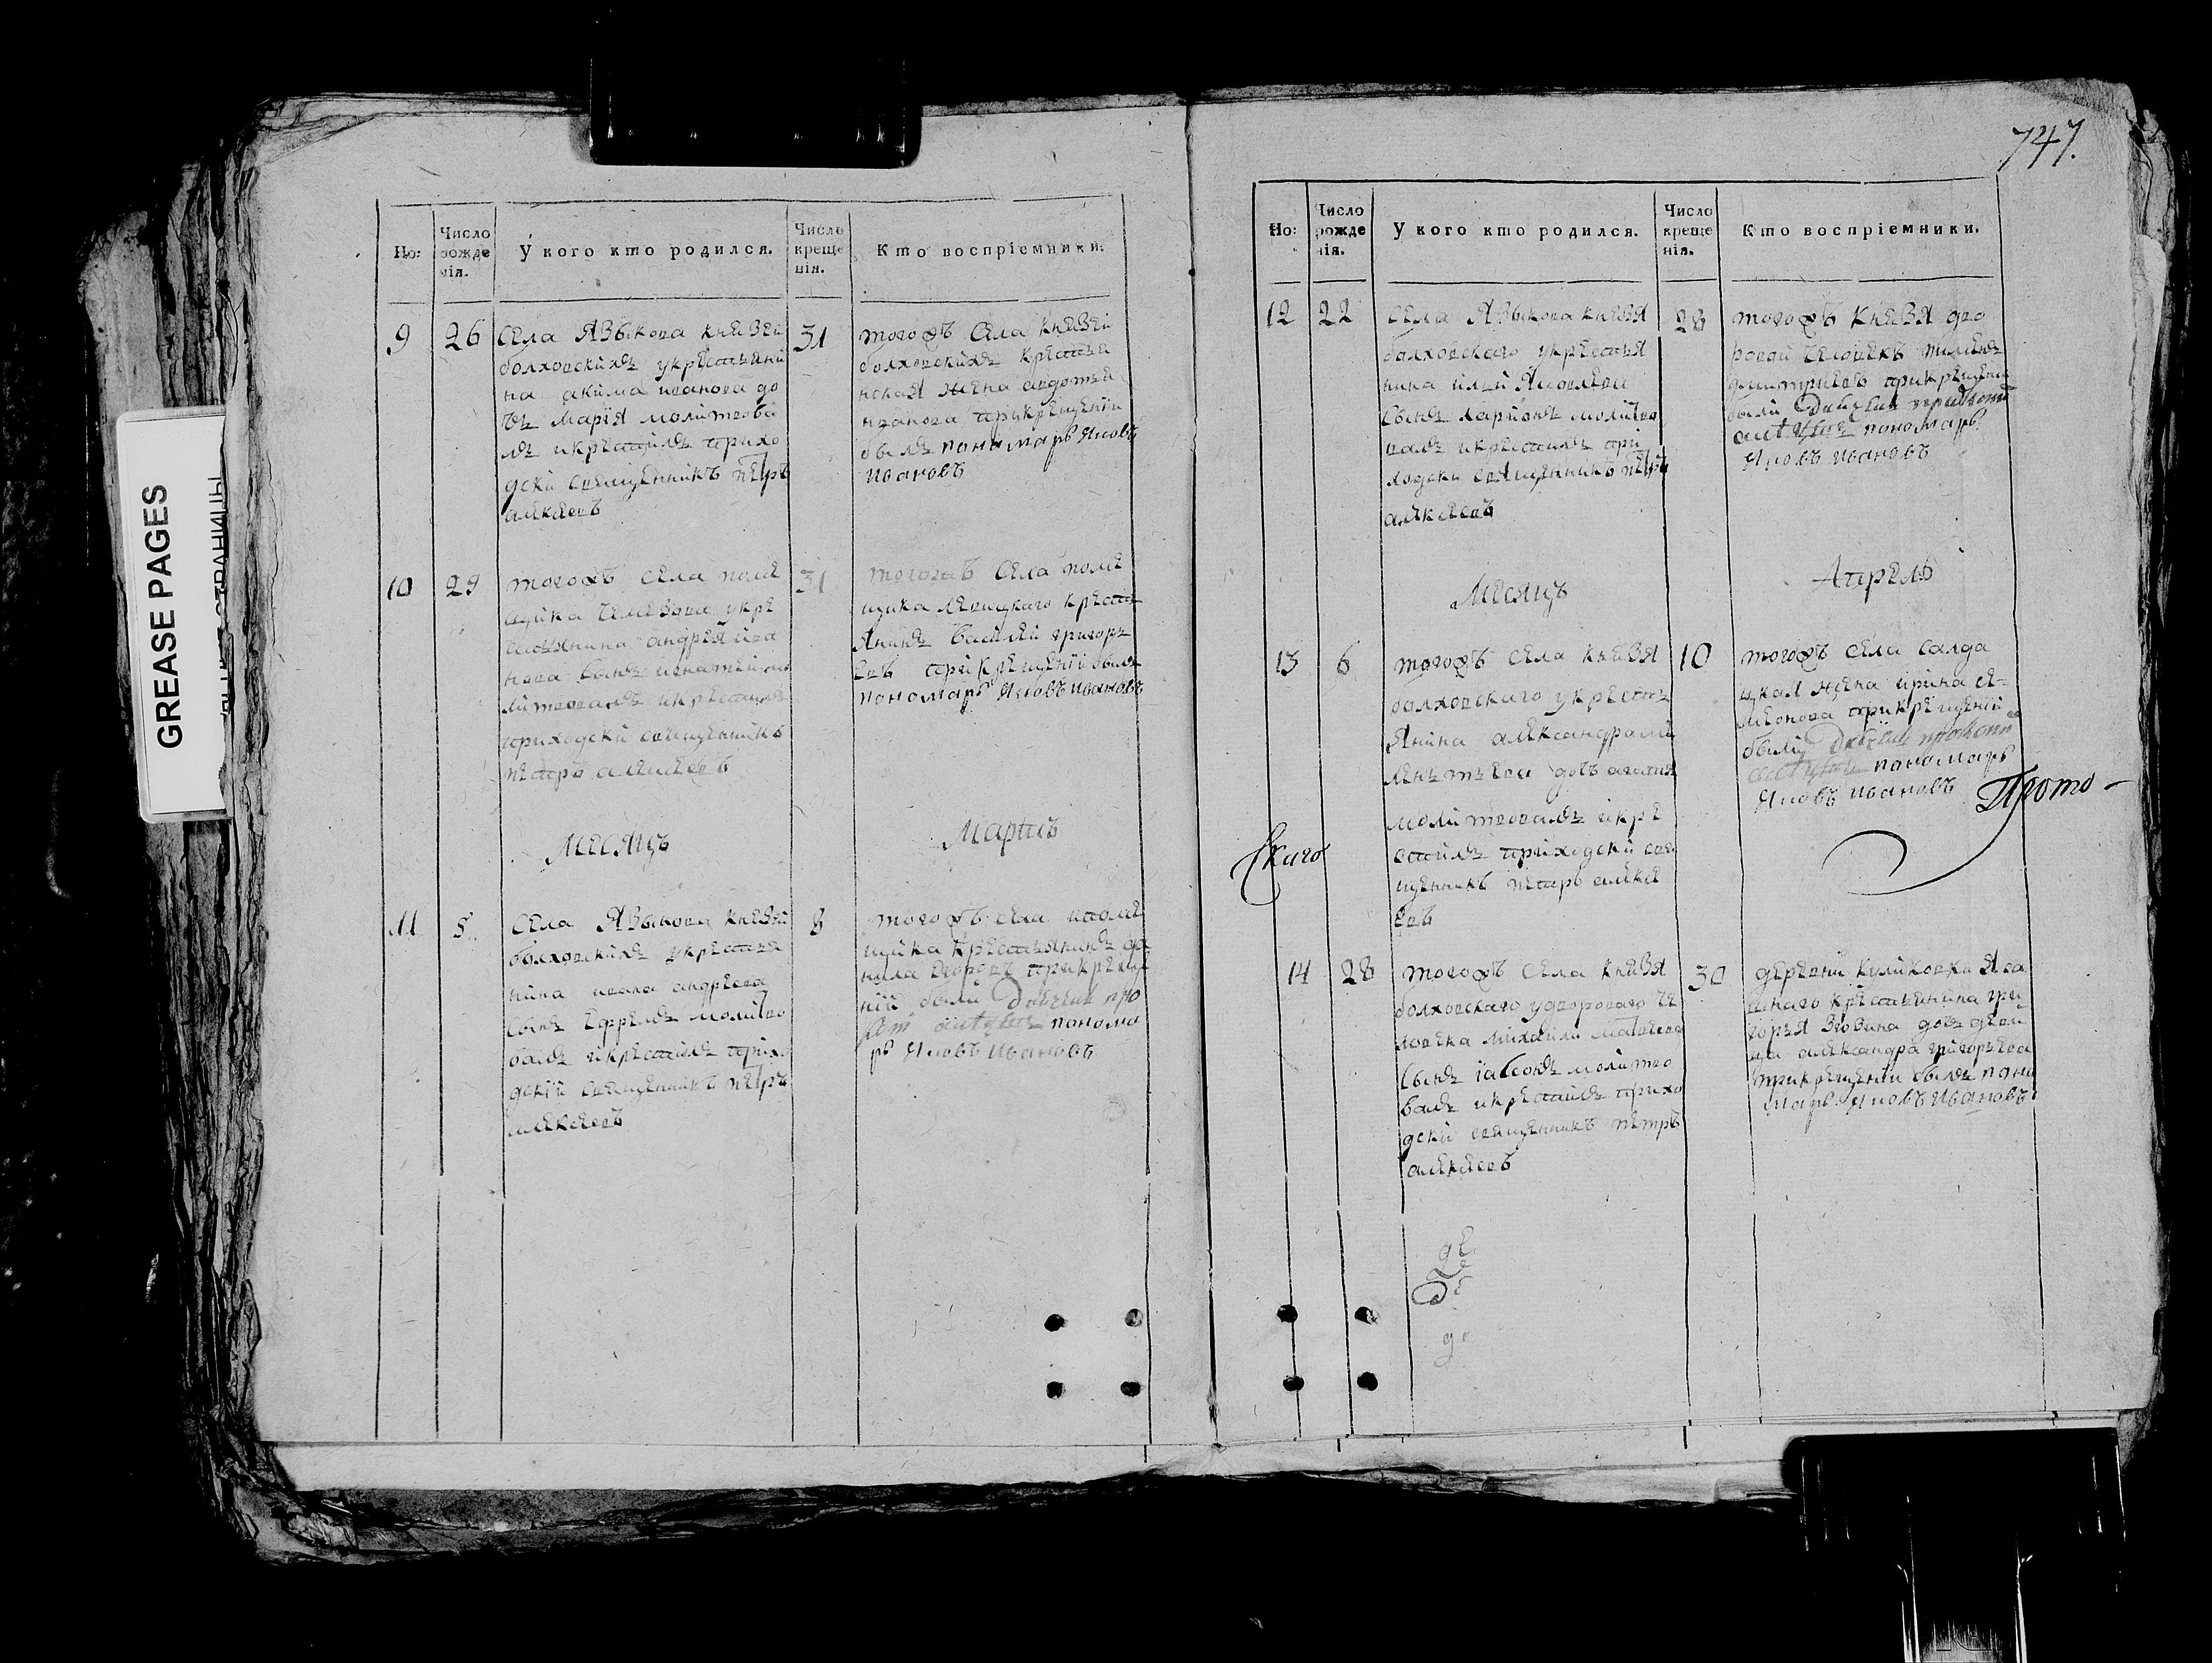 747.
GREASE PAGES
Но:
Число рожденія.
У кого кто родился.
Число крещенія.
Кто воспріемники.
9
26
села Языкова князей
болховскихъ укрестьяни
на акима иванова до
чь марія молитвова
лъ икрестилъ прихо
дски священникъ петръ
алексеевъ
31
тогожъ села князей
болховскихъ крестья
нская жена авдотья
иванова прикрещеніи
былъ пономарь Яковъ
Ивановъ
10
29
тогожъ села поме
щика укре
стьянина андрея ива
нова сынъ мо
литвовалъ икрестилъ
приходски священникъ
петръ алексеевъ
31
тогожъ села поме
щика левицкаго кресть
янинъ василей григорь
евъ прикрещеніи былъ
пономарь Яковъ Ивановъ
Месяцъ
Мартъ
11
5
села Языкова князей
болховскихъ укрестья
нина ивана андреева
сынъ ефремъ молитво
валъ икрестилъ прихо
дскій священникъ петръ
алексеевъ
8
тогожъ села поме
щика крестьянинъ да
нила прикреще
ній были
понома
рь Яковъ Ивановъ
Но:
Число рожденія.
У кого кто родился.
Число крещенія.
Кто воспріемники.
12
22
села Языкова князя
болховскаго укрестья
нина ильи Яковлева
сынъ ларионъ молитво
валъ икрестилъ при
ходски священникъ петръ
алексеевъ
28
тогожъ князя дво
ровой человекъ
дмитриевъ прикрещени
были
пономарь
Яковъ Ивановъ
Месяцъ
Апрель
13
6
тогожъ села князя
болховскаго укресть
янина александра
дочь
молитвовалъ икре
стилъ приходскій свя
щенникъ петръ алексе
евъ
10
тогожъ села салда
цкая жена ирина се-
менова прикрещеніи
были
пономарь
Яковъ Ивановъ
Прото-
скаго
14
28
тогожъ села князя
болховскаго удвороваго че
ловека михаила матвеева
сынъ молитво
валъ икрестилъ прихо
дски священникъ петръ
алексеевъ
30
деревни куликовки
крестьянина гри
горья дочь деви
ца александра григорьева
прикрещеніи былъ поно
марь Яковъ Ивановъ